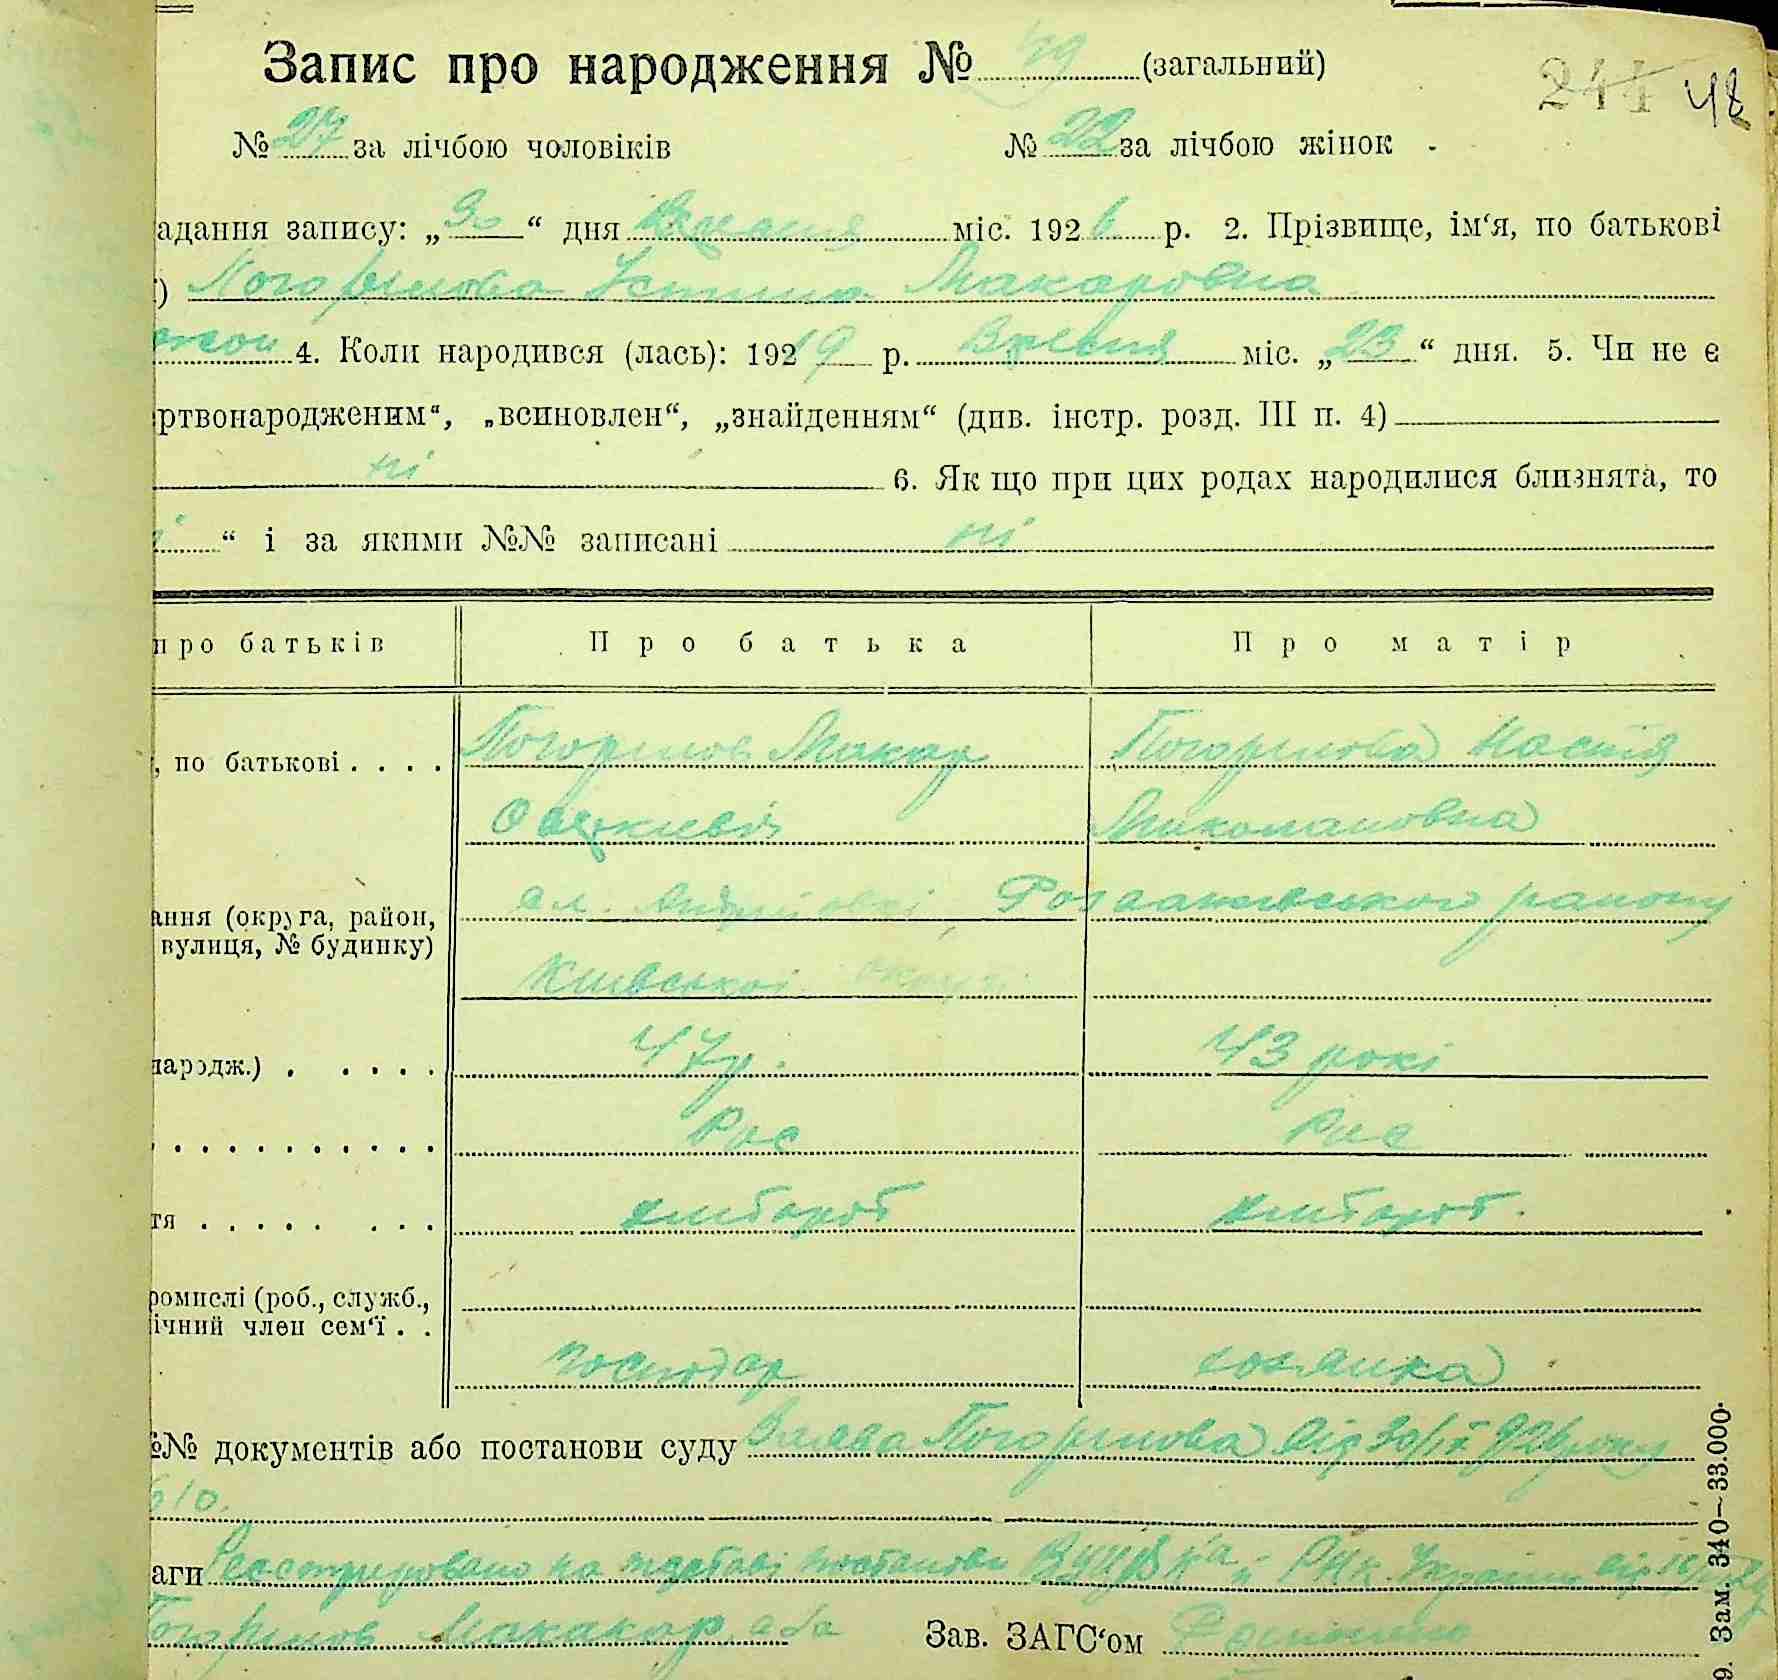 Запис про народження № 49 (загальний)
244 48
№ 27 за лічбою чоловіків № 22 за лічбою жінок
адання запису: „30“ дня Вересня міс. 1926 р. 2. Прізвище, ім‘я, по батькові
) Погорілова Устина Макаровна
4. Коли народився (лась): 1919 р. Вересня міс. „23“ дня. 5. Чи не є
ртвонародженим“, „всиновлен“, „знайденням“ (див. інстр. розд. III п. 4)
ні 6. Як що при цих родах народилися близнята, то
“ і за якими №№ записані ні
про батьків Про батька Про матір
, по батькові . . . . Погорілов Макар Погорілова Настія
Миколаповна
ання (округа, район, сл. Андріївкі, району
вулиця, № будинку)
Київської округи
народж.) . . . . . 47 р. 43 рокі
Рос Рос
тя . . . . . . . . хлібороб хлібороб.
ромислі (роб., служб.,
ічний член сем‘ї . .
господар хозяйка
№№ документів або постанови суду Заява Погорілова від 30/IX 926 року
аги Реєстріровано на підставі постанови ВУЦВК‘а і РНК України від
Погорілов Макакар Зав. ЗАГС‘ом
9. Зам. 340—33.000.